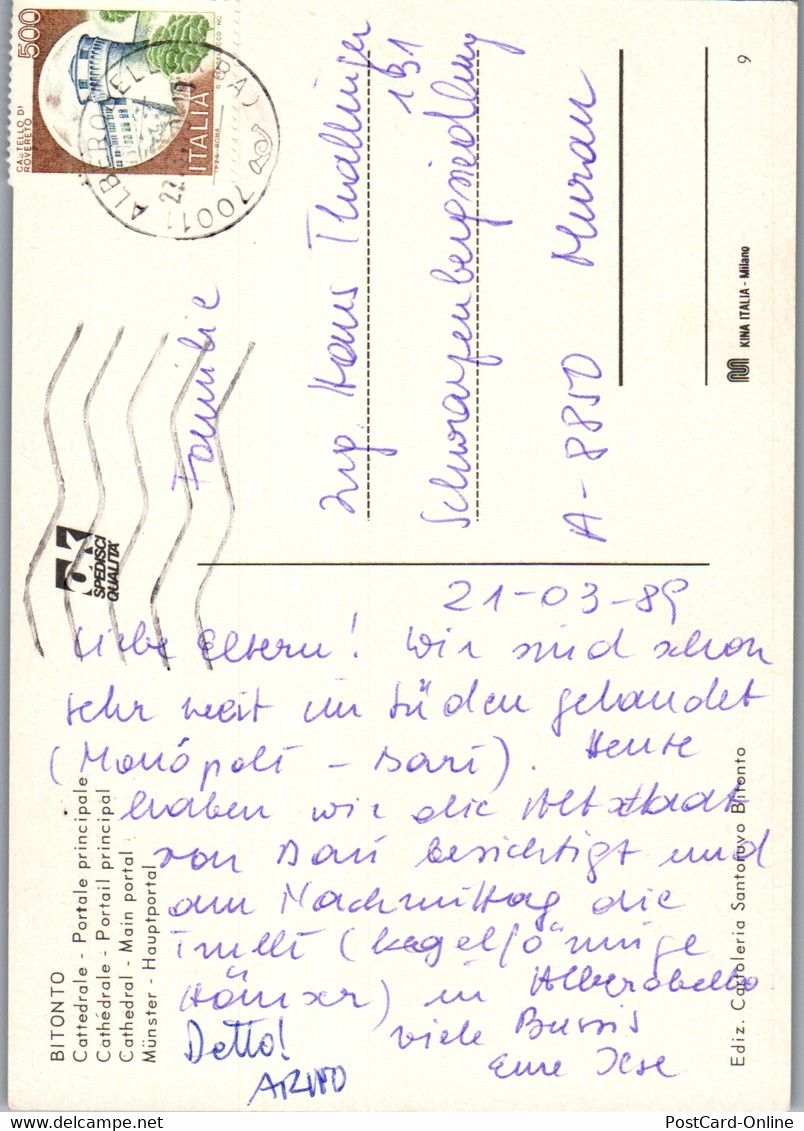 BITONTO
Cattedrale - Portale principale
Cathédrale - Portail principal
Cathedral - Main portal
Münster - Hauptportal
SPEDISCI
QUALITÀ
21-03-89
Liebe Eltern! Wir sind schon
sehr weit im Süden gelandet
(Monópoli - Bari). Heute
haben wir die Altstadt
von Bari besichtigt und
am Nachmittag die
Trulli (kegelförmige
Häuser) in Alberobello
viele Bussis
Eure Ilse
Detto!
ARNO
500
CASTELLO DI
ROVERETO
ITALIA
70011 ALBEROBELLO (BA)
Familie
Ing. Hans Thallinger
Schwarzenbergsiedlung
191
A-8850 Murau
Ediz. Cartoleria Santoruvo Bitonto
KINA ITALIA - Milano
9
PostCard-Online